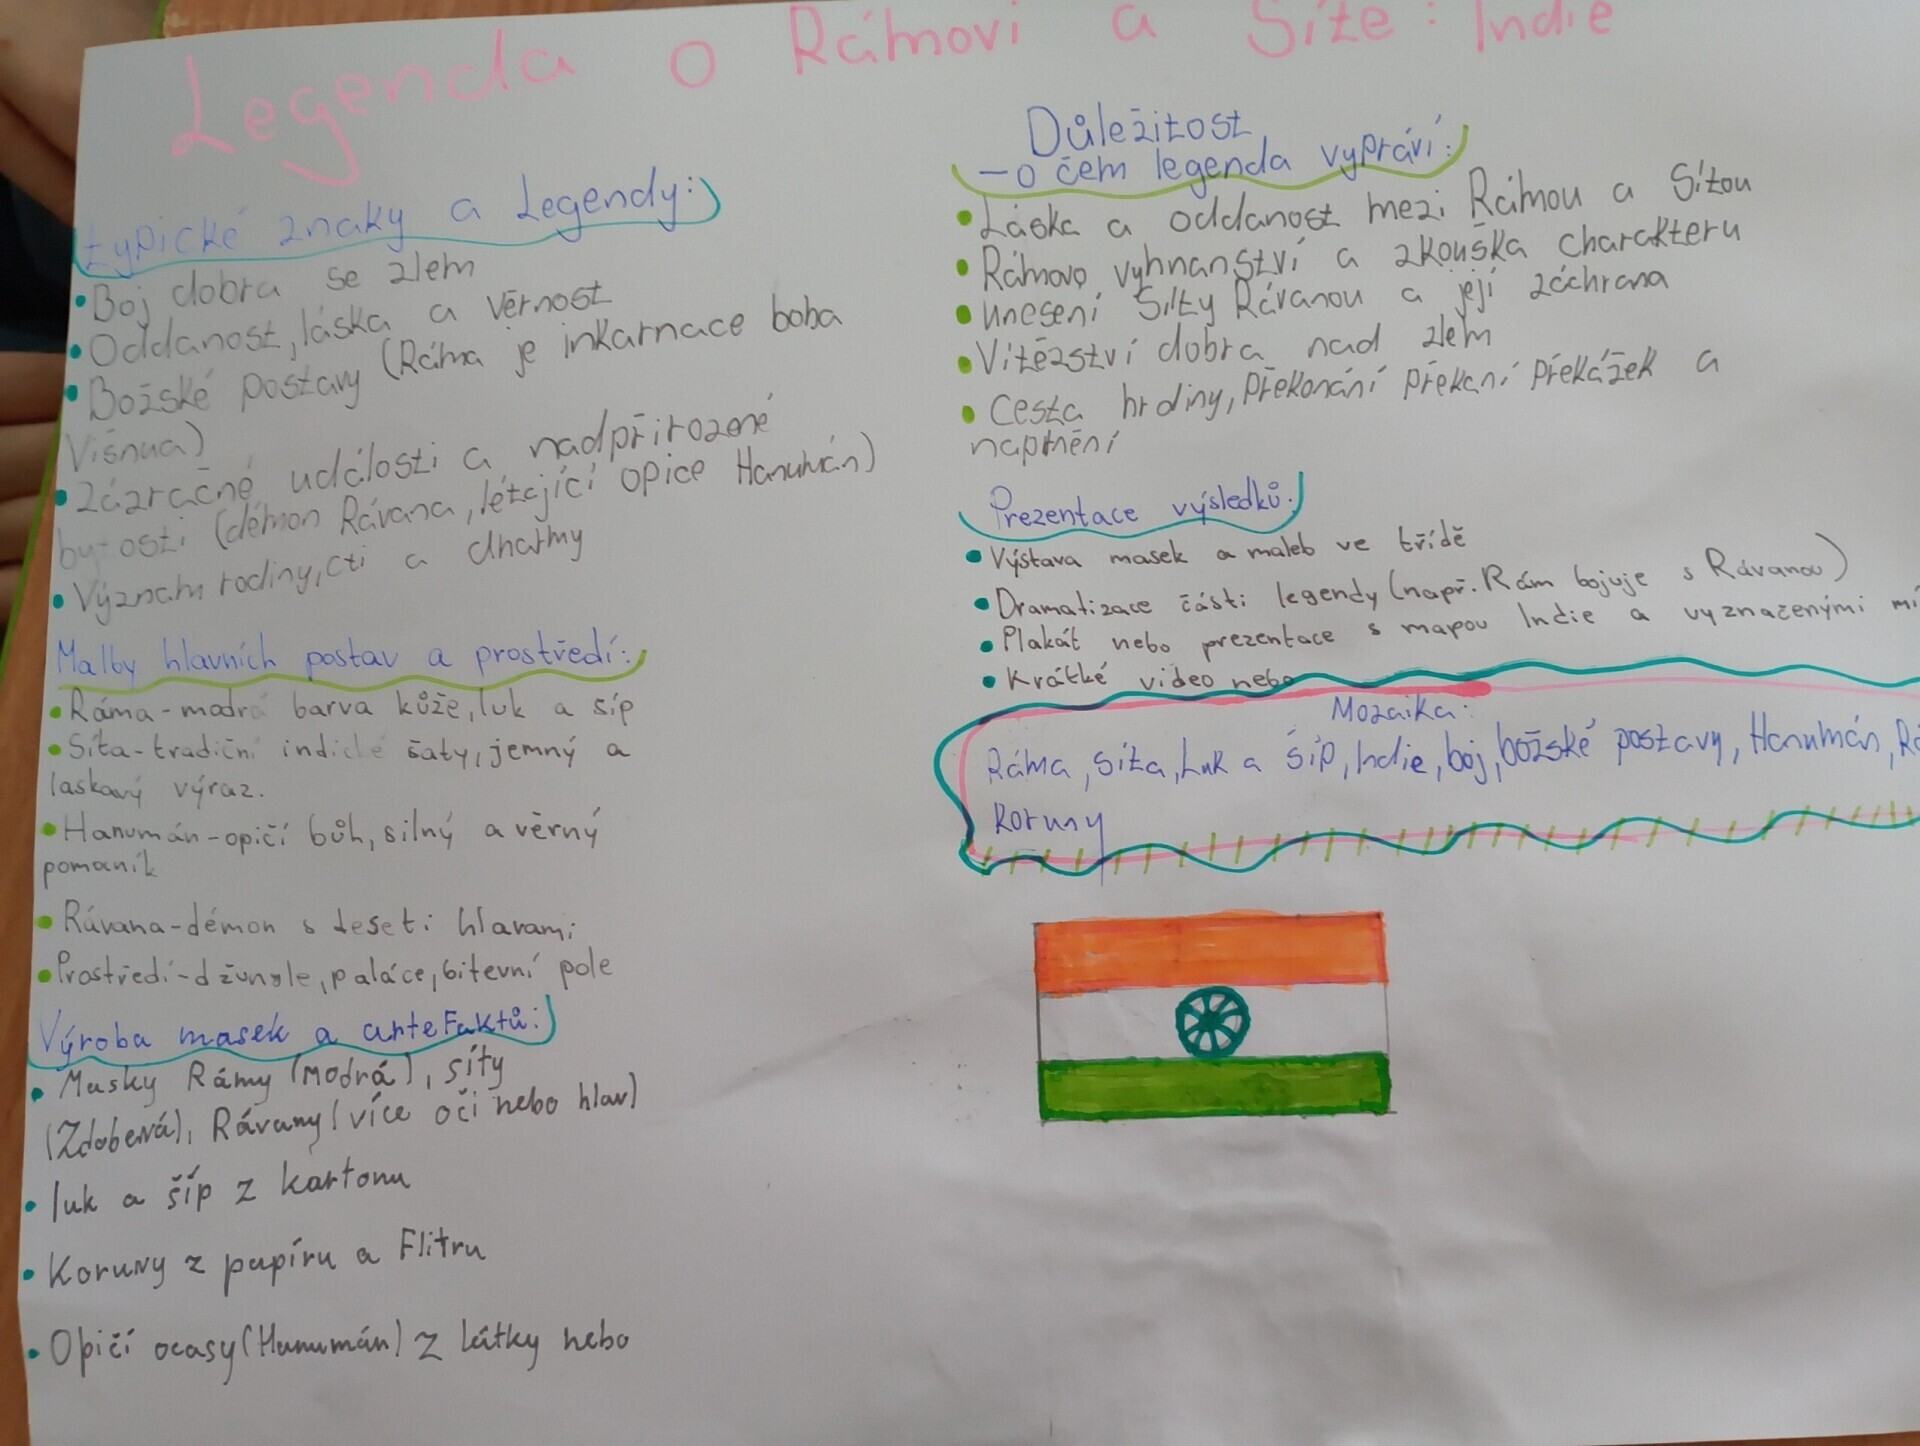 Legenda o Rámovi a Síze: Indie
typické znaky a Legendy:
• Boj dobra se zlem
• Oddanost, láska a věrnost
• Božské postavy (Ráma je inkarnace boha
Višnua)
• Zázračné události a nadpřirozené
bytosti (démon Rávana, létající opice Hanumán)
• Význam rodiny, cti a dharmy
Malby hlavních postav a prostředí:
• Ráma - modrá barva kůže, luk a síp
• Síta - tradiční indické šaty, jemný a
laskavý výraz.
• Hanumán - opičí bůh, silný a věrný
pomaník
• Rávana - démon s deseti hlavami
• Prostředí - džungle, paláce, bitevní pole
Výroba masek a artefaktů:
• Masky Rámy (modrá), síty
(Zdobená), Rávany (více očí nebo hlav)
• luk a šíp z kartonu
• Koruny z papíru a Flitru
• Opičí ocasy (Hanumán) z látky nebo
Důležitost
- o čem legenda vypráví:
• Láska a oddanost mezi Rámou a Sítou
• Rámovo vyhnanství a zkouška charakteru
• unesení Sity Rávanou a její záchrana
• Vítězství dobra nad zlem
• Cesta hrdiny, překonání překaní překážek a
naplnění
Prezentace výsledků:
• Výstava masek a maleb ve třídě
• Dramatizace části legendy (např. Rám bojuje s Rávanou)
• Plakát nebo prezentace s mapou Indie a vyznačenými mí
• Krátké video nebo
Mozaika:
Ráma, Síta, Luk a Šíp, Indie, boj, božské postavy, Hanumán, Rá
Koruny